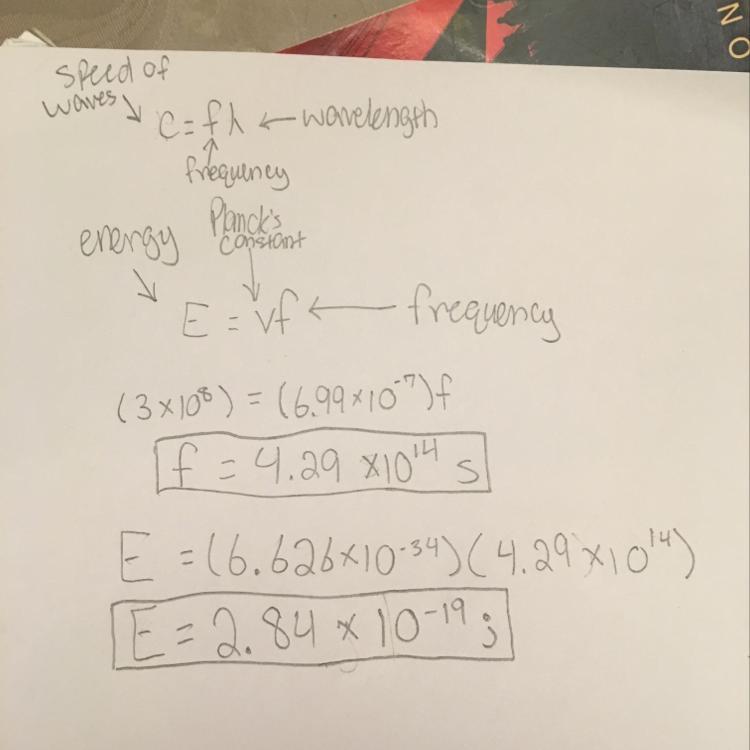 NO
speed of
waves ↘ c = fλ ← wavelength
↑
frequency
energy ↘
Planck's
constant
↓
E = vf ← frequency
(3×10⁸) = (6.99×10⁻⁷)f
f = 4.29 ×10¹⁴ s
E = (6.626×10⁻³⁴)(4.29×10¹⁴)
E = 2.84 × 10⁻¹⁹ j